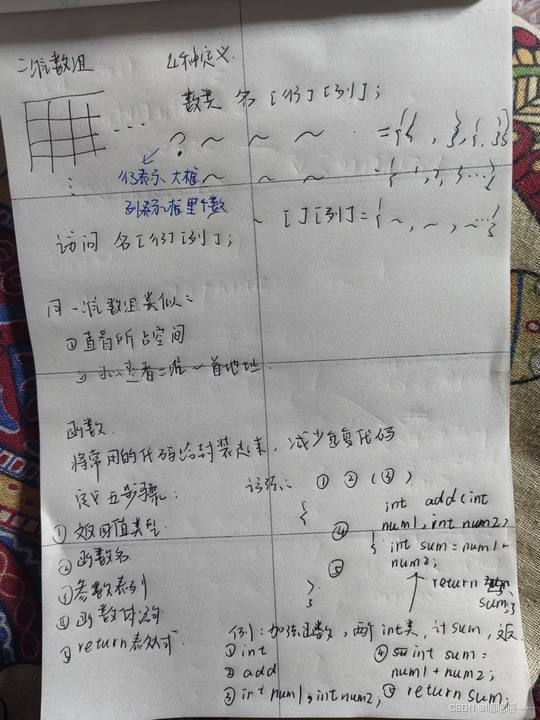 二维数组 4种定义.
数类 名[行][列];
? ~ ~ ~ ={{ , },{, }}
行表示大框 ~ ~ ~ ={ , , , ...}
列表示框里个数 ~ [][列]={~,~,~...}
访问 名[行][列];
同一维数组类似:
①直看所占空间
② 查看二维~首地址.
函数.
将常用的代码给封装起来,减少重复代码
定义五步骤: 语法: ① ② (③)
①返回值类型 { int add(int
num1, int num2)
②函数名 ④ { int sum=num1+
num2;
③参数表列 ⑤ return
sum;}
④函数体语句 }
⑤return表达式 例:加法函数,两个int类,计sum,返
①int ④ int sum=
②add num1+num2;
③int num1, int num2, ⑤ return sum;
CSDN